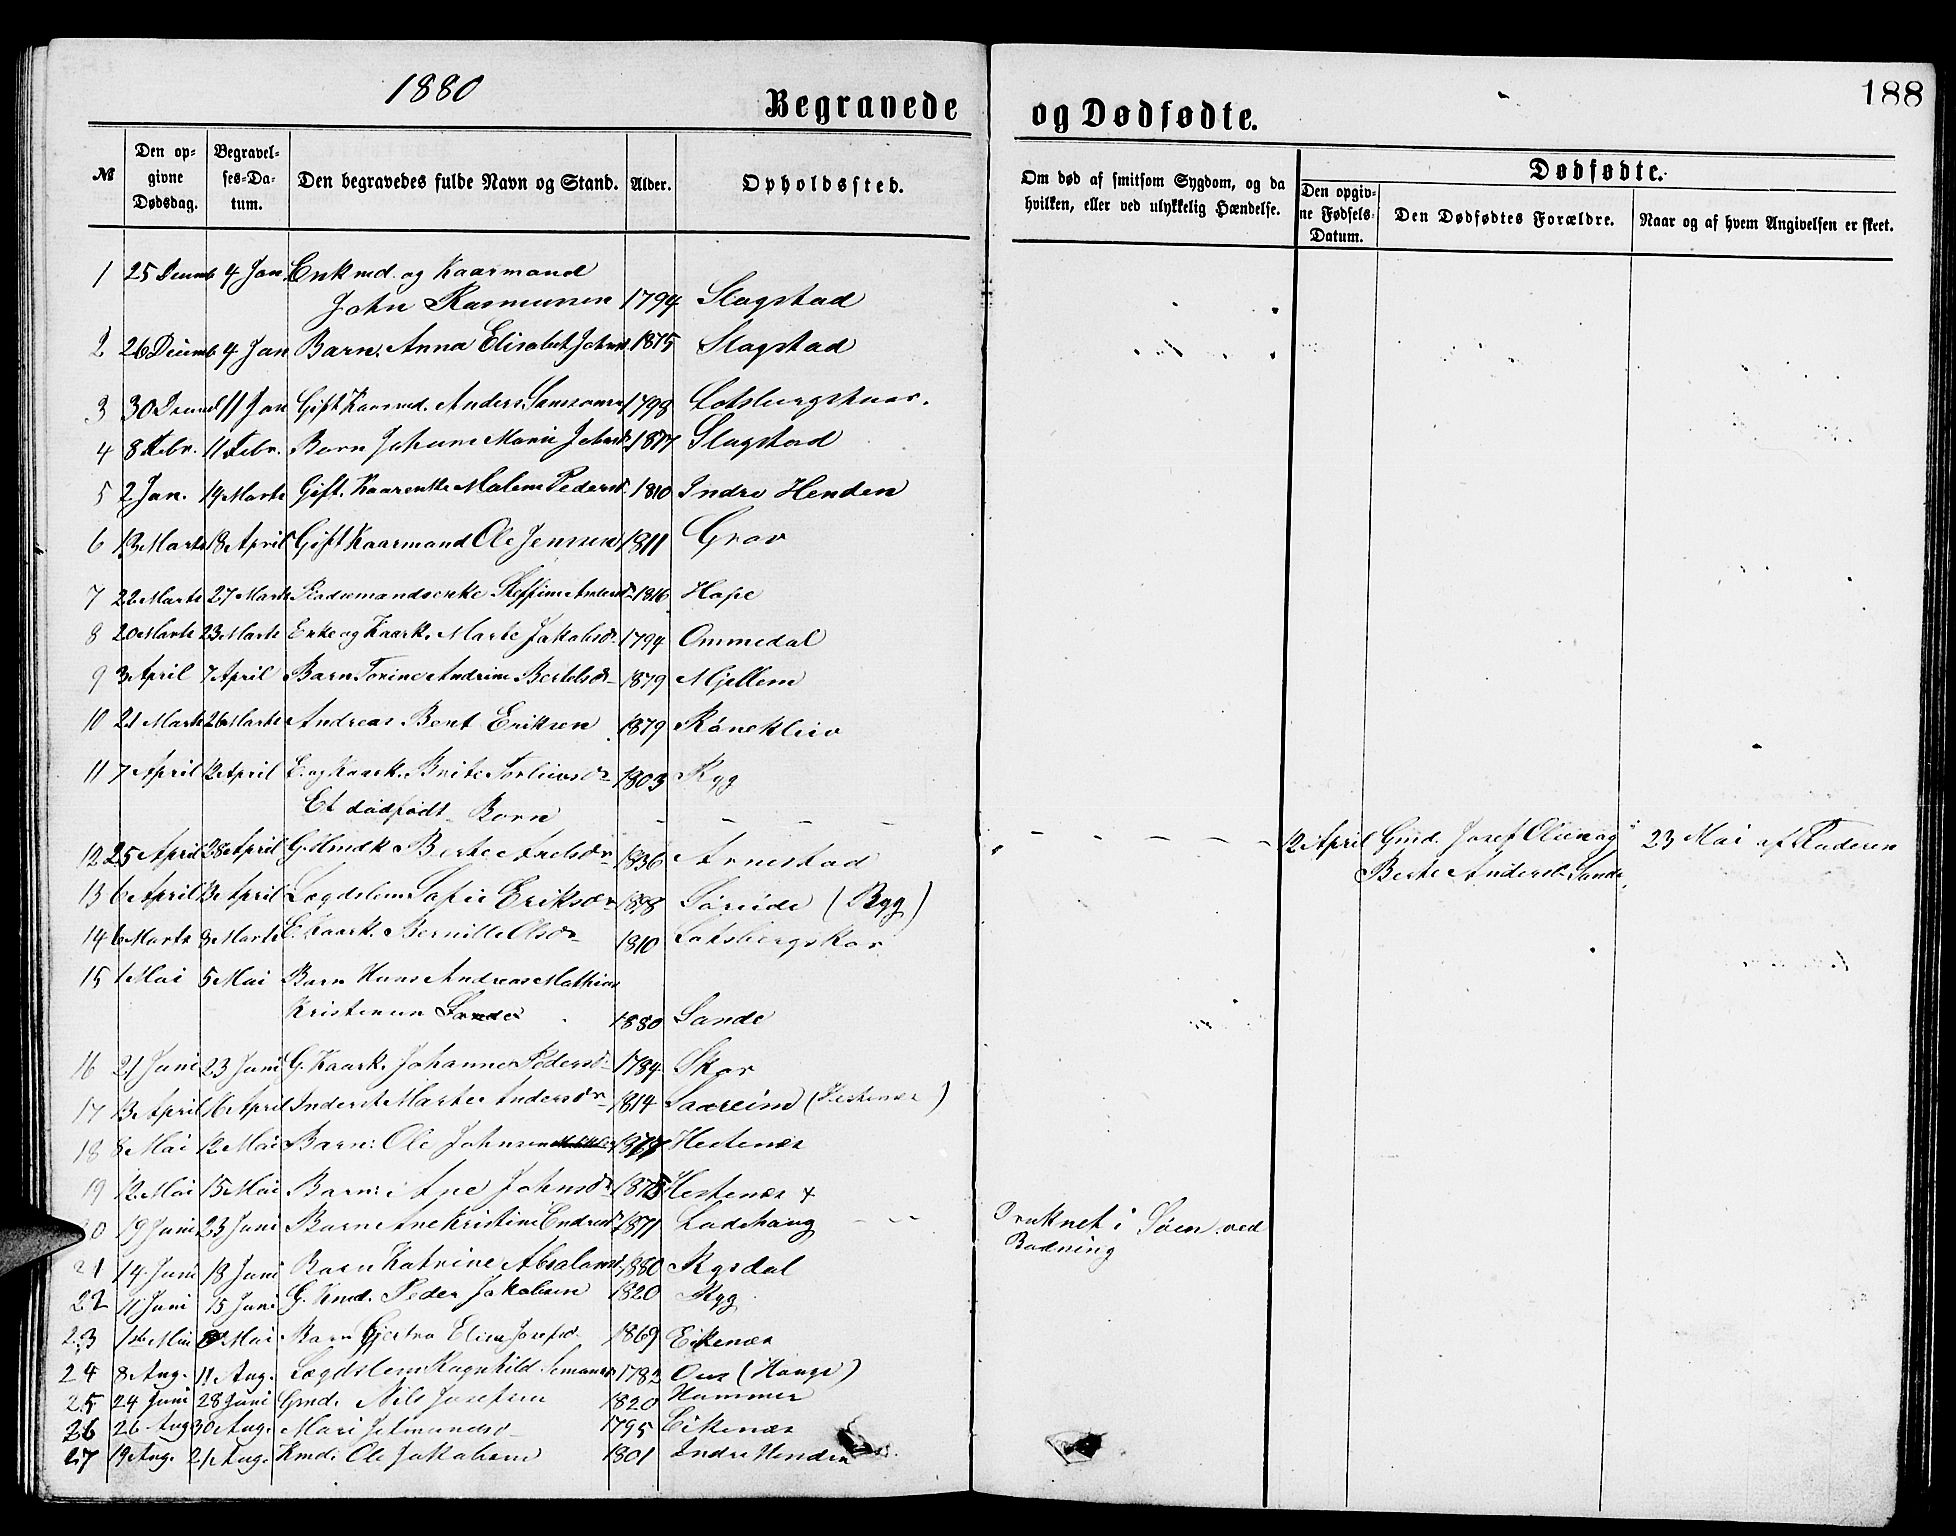 1880
Begravede og Dødfødte.
188
№ Den opgivne Dødsdag. Begravelses-Datum. Den begravedes fulde Navn og Stand. Alder. Opholdssted. Om død af smitsom Sygdom, og da hvilken, eller ved ulykkelig Hændelse. Dødfødte. Den opgivne Fødsels-Datum. Den Dødfødtes Forældre. Naar og af hvem Angivelsen er skeet.
1 25 Decemb 4 Jan. Enkmd. og Kaarmand
John Rasmussen 1794 Slagstad
2 26 Decemb 4 Jan Barn. Anna Elisabet Johnsd. 1875 Slagstad
3 30 Decemb 11 Jan Gift Kaarmd. Anders 1798
4 8 Febr. 11 Febr. Barn Johane Marie Johnsd. 1877 Slagstad
5 2 Jan. 19 Marts Gift. Kaarenke Malene Pedersd. 1810 Indre Henden
6 13 Marts 18 April Gift Kaarmand Ole Jensen 1811 Grov
7 22 Marts 27 Marts Pladsemandsenke Steffine Andersd. 1816 Hope
8 20 Marts 23 Marts Enke og Kaark. Marte Jakobsd. 1794 Ommedal
9 3 April 7 April Barn Torine Andrine Bertelsdr 1879 Mjellem
10 21 Marts 26 Marts Andreas Bent Eriksen 1879 Røneklev
11 7 April 12 April E. og Kaark. Brite Torleivsdr 1803 Ryg
Et dødfødt Barn – – – – – – – – – 12 April Gmd. Josef Olsen og 23 Mai af Faderen
12 25 April 28 April G. Hmdk Berte Axelsdr 1836 Arnestad
Berte Andersd. Sande
13 6 April 13 April Lægdslem Sofie Eriksdr 1898 Søreide (Ryg)
14 6 Marts 9 Marts E. Kaark. Bernille Olsdr 1810 Lotsbergskor
15 1 Mai 5 Mai Barn Hans Andreas Mathias
Kristensen Sande 1880 Sande
16 21 Juni 23 Juni G. Kaark. Johanne Pedersd. 1784 Skor
17 13 April 16 April Inderst Marte Andersdr 1814 Saareim (Hestenær)
18 8 Mai 12 Mai Barn: Ole Johnsen Hestenær
19 12 Mai 15 Mai Barn: Ane Johnsdr 1875 Hestenær +
20 19 Juni 23 Juni Barn Ane Kristine Endresd. 1871 Ladehaug – – Druknet i Søen ved
Badning
21 14 Juni 18 Juni Barn Katrine Absalonsd. 1880 Rygdal
22 11 Juni 15 Juni G. Kmd. Peder Jakobsen 1820 Ryg
23 Mai Mai Barn Gjertra Elise Josefsd. 1869 Eikenær
24 8 Aug. 11 Aug. Lægdslem Ragnhild 1782 Ous (Hauge)
25 24 Juni 28 Juni Gmd. Nils Josefsen 1820 Hammer
26 26 Aug 30 Aug. Mari Jetmundsd 1795 Eikenær
27 19 Aug. 21 Aug. Kmd. Ole Jakobsen 1801 Indre Henden